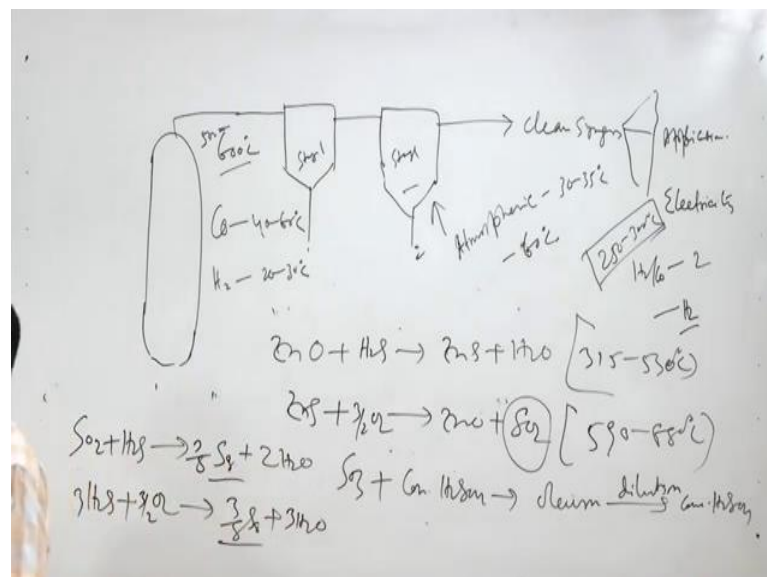 600°C
Stage 1
Stage
clean Syngas
Application
CO - 40-60°C
H2 - 20-30°C
Atmospheric - 30-35°C
- 60°C
Electricity
250-300°C
H2/CO - 2
- H2
ZnO + H2S → ZnS + H2O [315-530°C)
ZnS + 3/2O2 → ZnO + SO2 [590-680°C)
SO2 + H2S → 3/8 S8 + 2H2O
SO3 + Con. H2SO4 → Oleum dilution → Con. H2SO4
3H2S + 3/2O2 → 3/8 S8 + 3H2O